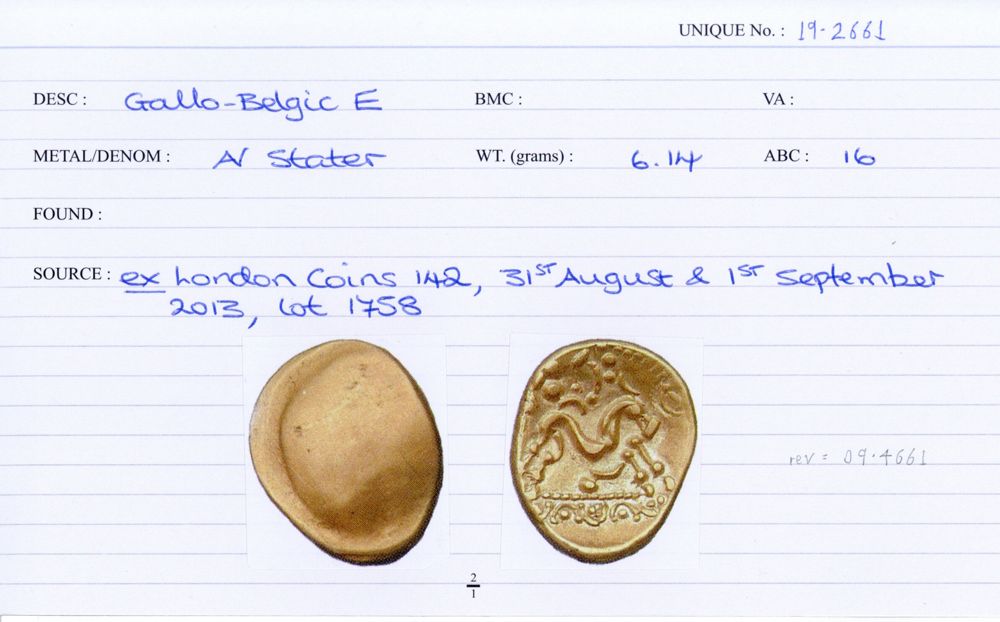 UNIQUE No. : 19-2661
DESC : Gallo-Belgic E BMC : VA :
METAL/DENOM : AV Stater WT. (grams) : 6.14 ABC : 16
FOUND :
SOURCE : ex London Coins 142, 31ST August & 1ST September
2013, lot 1758
rev = 09.4661
2
1